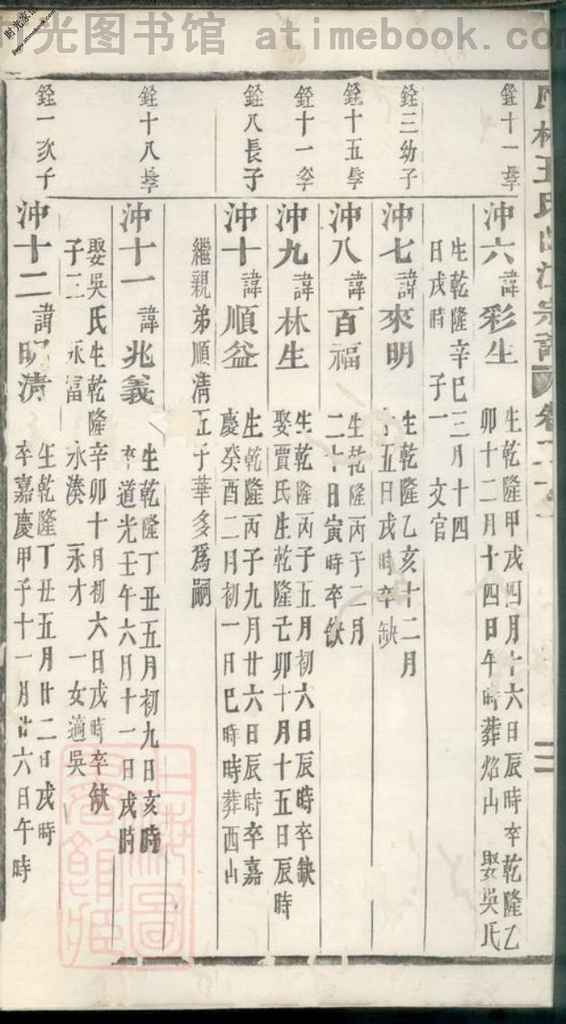 时光图书馆 atimebook.com
王氏
宗譜
卷
二
銓十一長子
沖六 諱彩生
生乾隆甲戌四月十六日辰時卒乾隆乙
卯十二月十四日午時葬焰山 娶吳氏
生乾隆辛巳三月十四
日戌時 子一 文官
銓三幼子
沖七 諱來明
生乾隆乙亥十二月
十五日戌時卒缺
銓十五長子
沖八 諱百福
生乾隆丙子二月
二十日寅時卒缺
銓十一次子
沖九 諱林生
生乾隆丙子五月初六日辰時卒缺
娶賈氏生乾隆己卯十月十五日辰時
銓八長子
沖十 諱順益
生乾隆丙子九月廿六日辰時卒嘉
慶癸酉二月初一日巳時葬西山
繼親弟順清五子華多為嗣
銓十八長子
沖十一 諱兆義
生乾隆丁丑五月初九日亥時
卒道光壬午六月十一日戌時
娶吳氏生乾隆辛卯十月初六日戌時卒缺
子三 永富 永湊 永才 一女適吳
銓一次子
沖十二 諱明清
生乾隆丁丑五月廿二日戌時
卒嘉慶甲子十一月廿六日午時